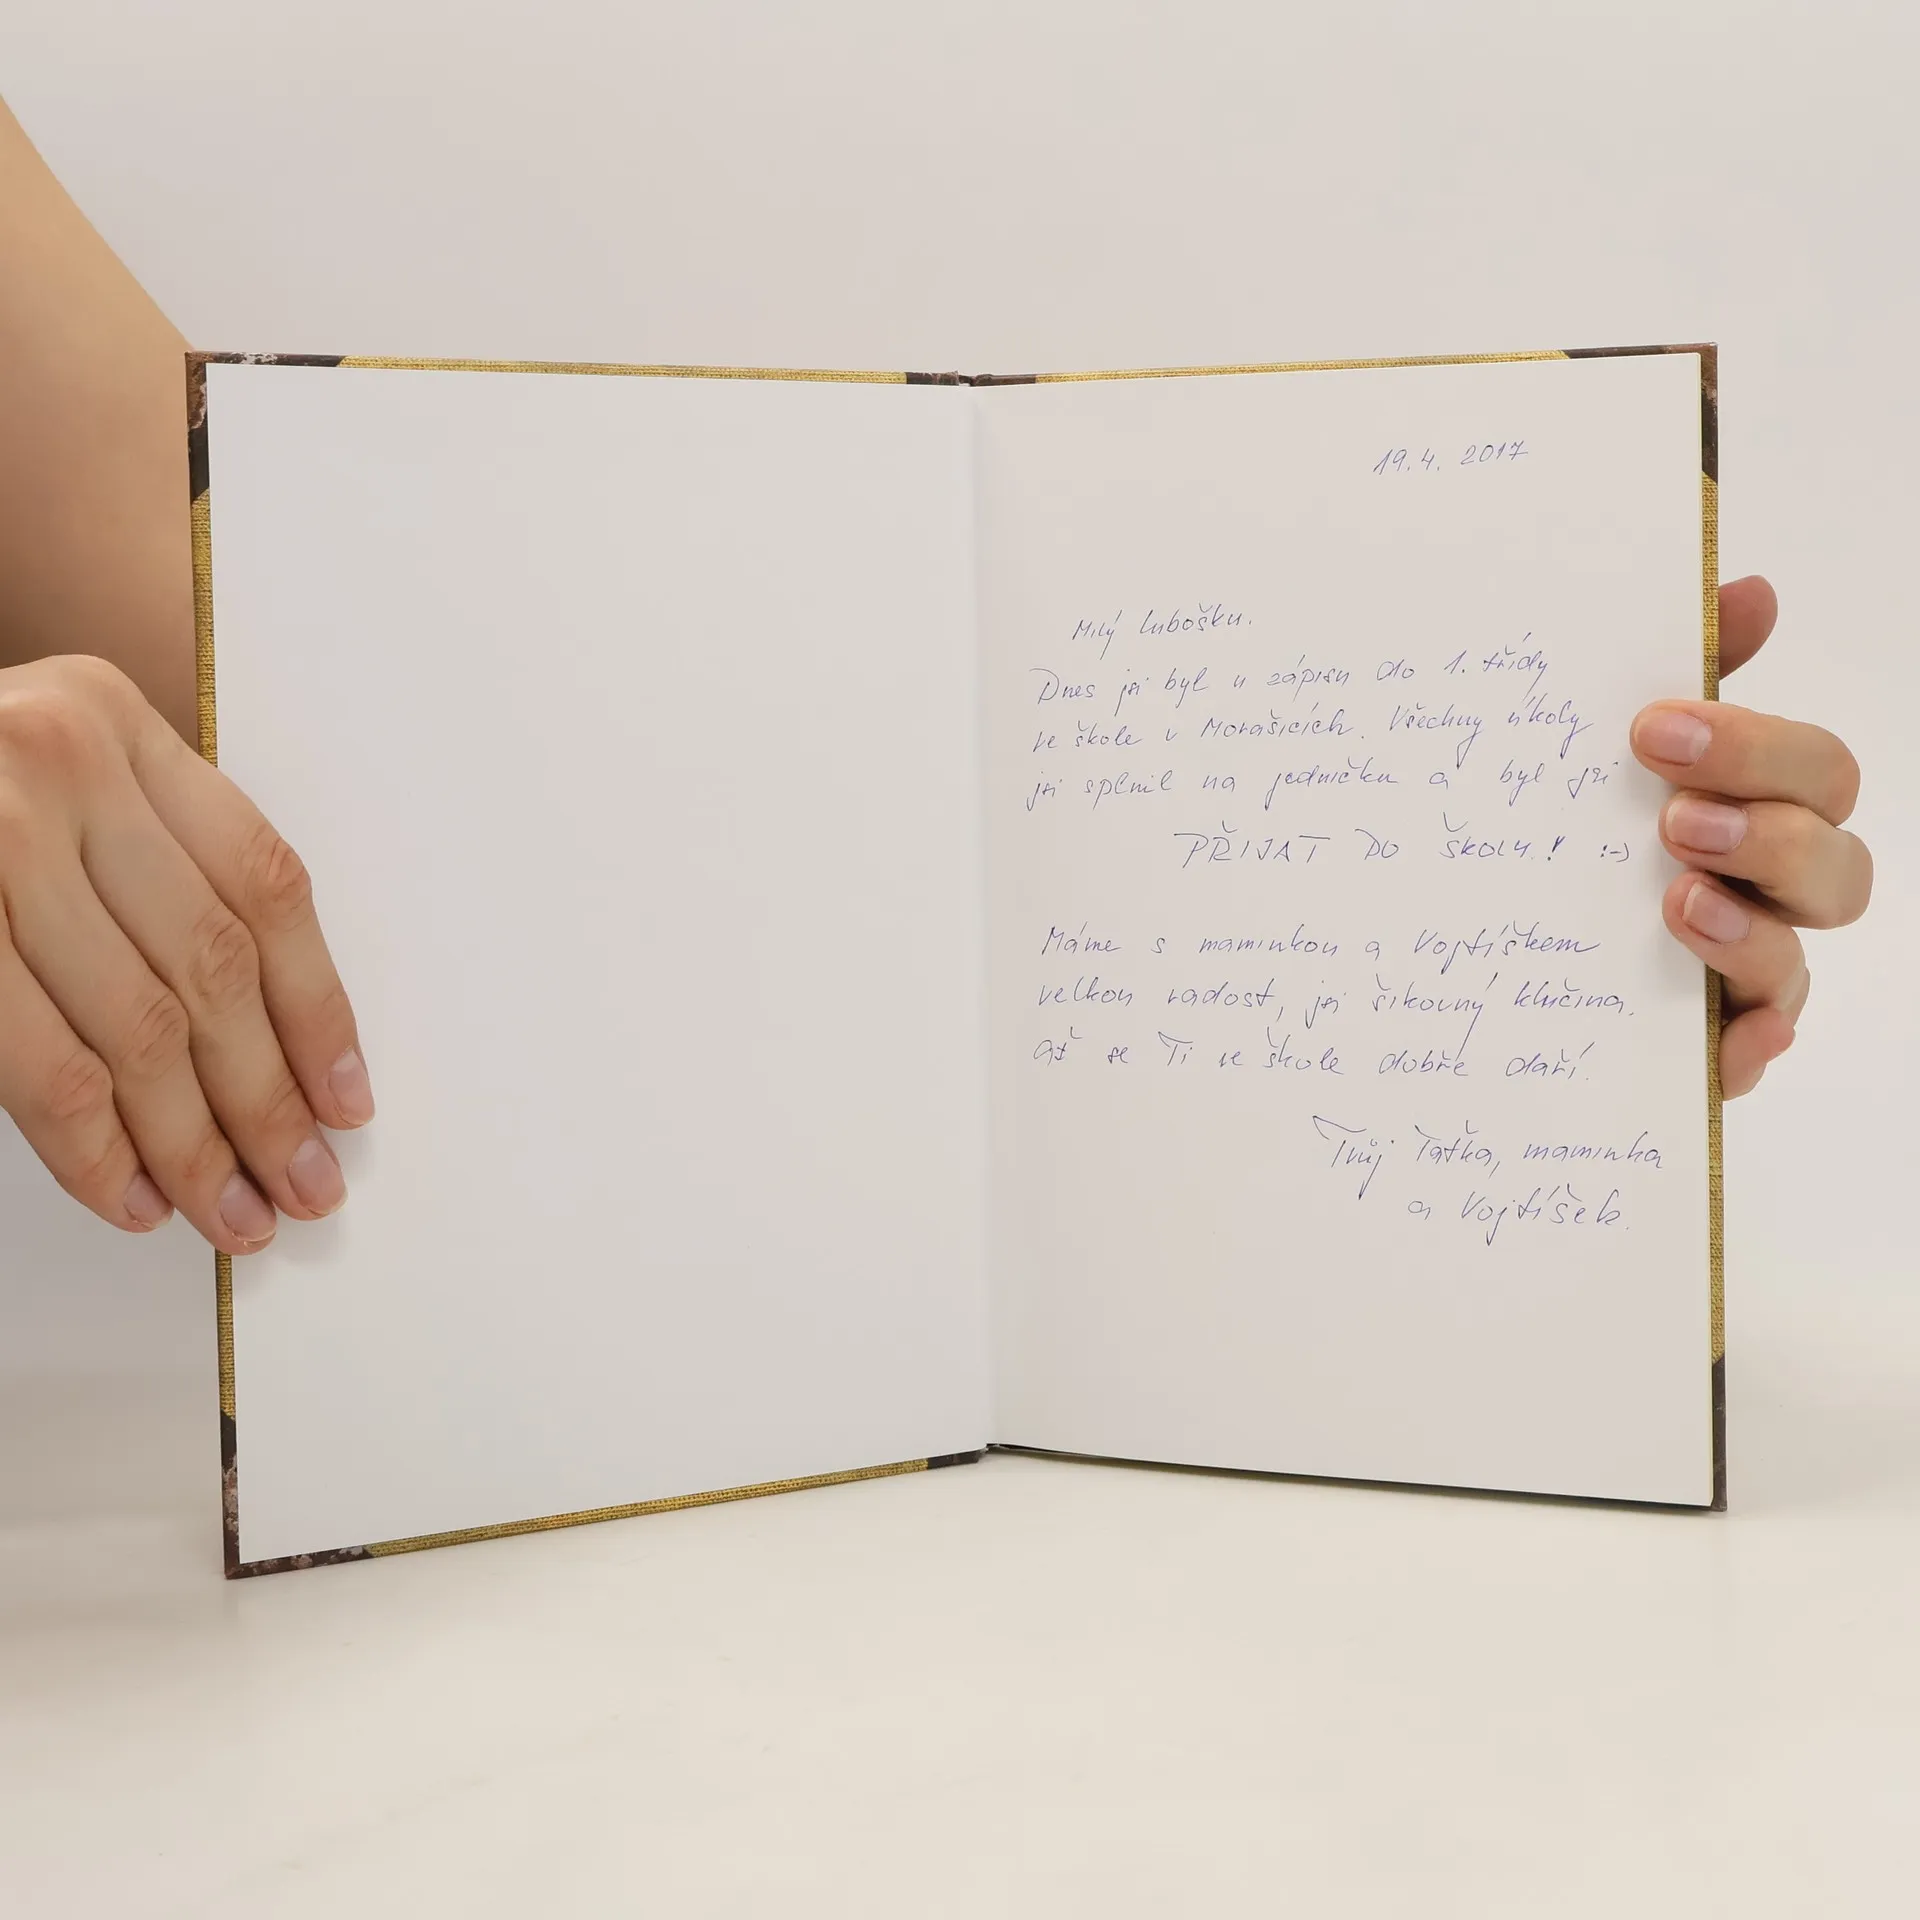 19.4. 2017
Milý Lubošku.
Dnes jsi byl u zápisu do 1. třídy
ve škole v Morašicích. Všechny úkoly
jsi splnil na jedničku a byl jsi
PŘIJAT DO ŠKOLY.! :-)
Máme s maminkou a Vojtíškem
velkou radost, jsi šikovný klučina.
Ať se Ti ve škole dobře daří.
Tvůj Taťka, maminka
a Vojtíšek.